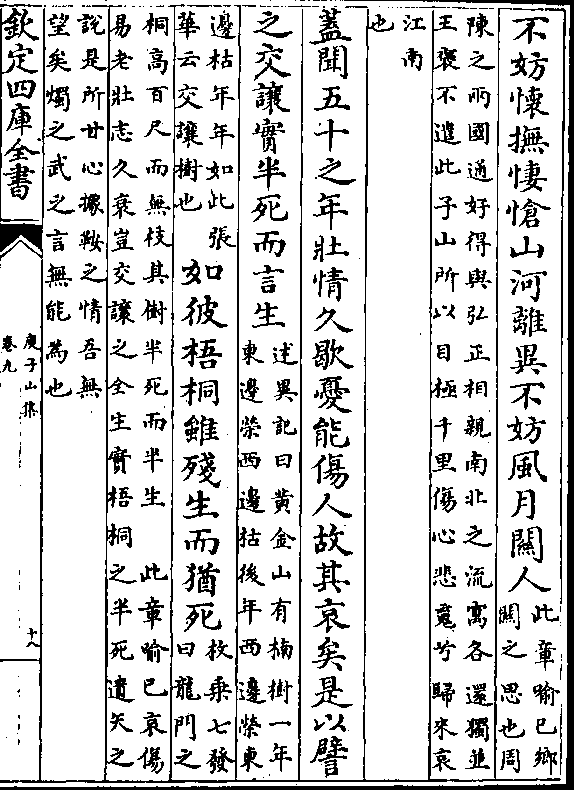 不妨懷撫悽愴山河離異不妨風月關人
此章喻已鄉
關之思也周
陳之兩國通好得與弘正相親南北之流寓各還獨並
王褒不遣此子山所以目極千里傷心悲䰟兮歸來哀
江南
也
蓋聞五十之年壯情久歇憂能傷人故其哀矣是以譬
之交讓實半死而言生
述異記曰黃金山有楠樹一年
東邊榮西邊枯後年西邊榮東
邊枯年年如此張
華云交讓樹也
如彼梧桐雖殘生而猶死
枚乗七發
曰龍門之
桐高百尺而無枝其樹半死而半生 此章喻已哀傷
易老壯志久衰豈交讓之全生實梧桐之半死遺矢之
說是所甘心據鞍之情吾無
望矣燭之武之言無能為也
欽定四庫全書
庾子山集
卷九
十八